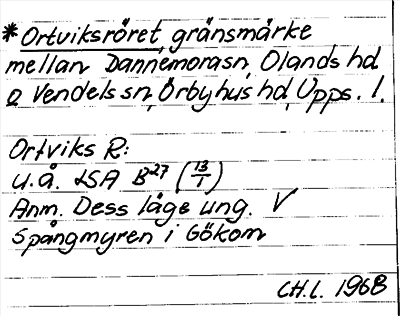 *Ortviksröret, gränsmärke
mellan Dannemora sn, Olands hd
o Vendels sn, Örbyhus hd, Upps. l.
Ortviks R:
u.å. LSA B27 (13/1)
Anm. Dess läge ung. V
Spångmyren i Gökom
CH.L. 1968